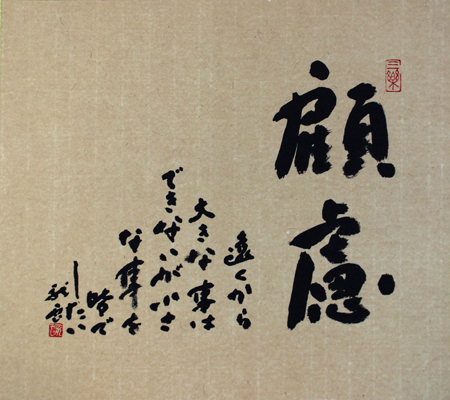 三樂
顧慮
遠くから
大きな事は
できないが小さ
な事を
で
したい